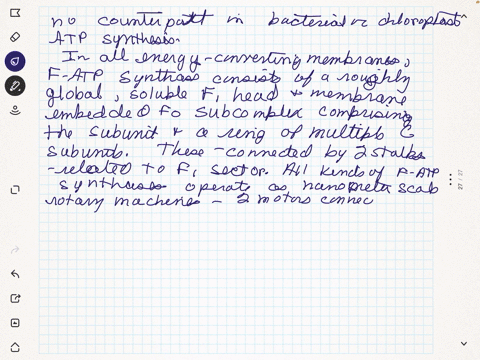 no counterpart in bacterial or chloroplast
ATP synthesis.
In all energy-converting membranes,
F-ATP synthases consists of a roughly
global, soluble F, head & membrane
embedded Fo subcomplex comprising
the subunit & a ring of multiple C
subunits. These - connected by 2 stalks
- related to F, sector. All kinds of F-ATP
synthases operate as nanometer scale
rotary machines - 2 motors connec
27 / 27